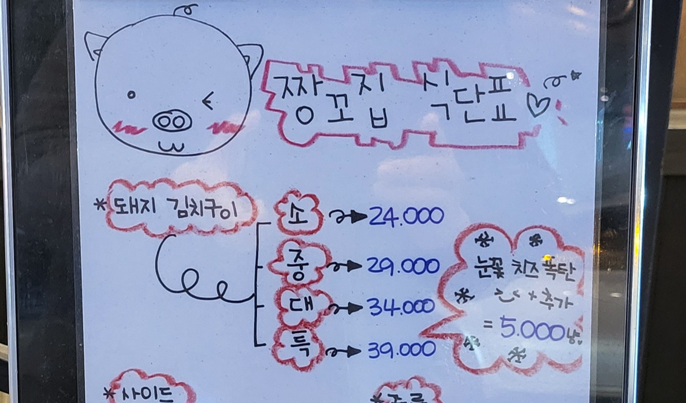 짱꼬집 식단표
*돼지 김치구이
소 → 24.000
중 → 29.000
대 → 34.000
특 → 39.000
눈꽃 치즈 폭탄
+ 추가
= 5.000냥
*사이드
*주류